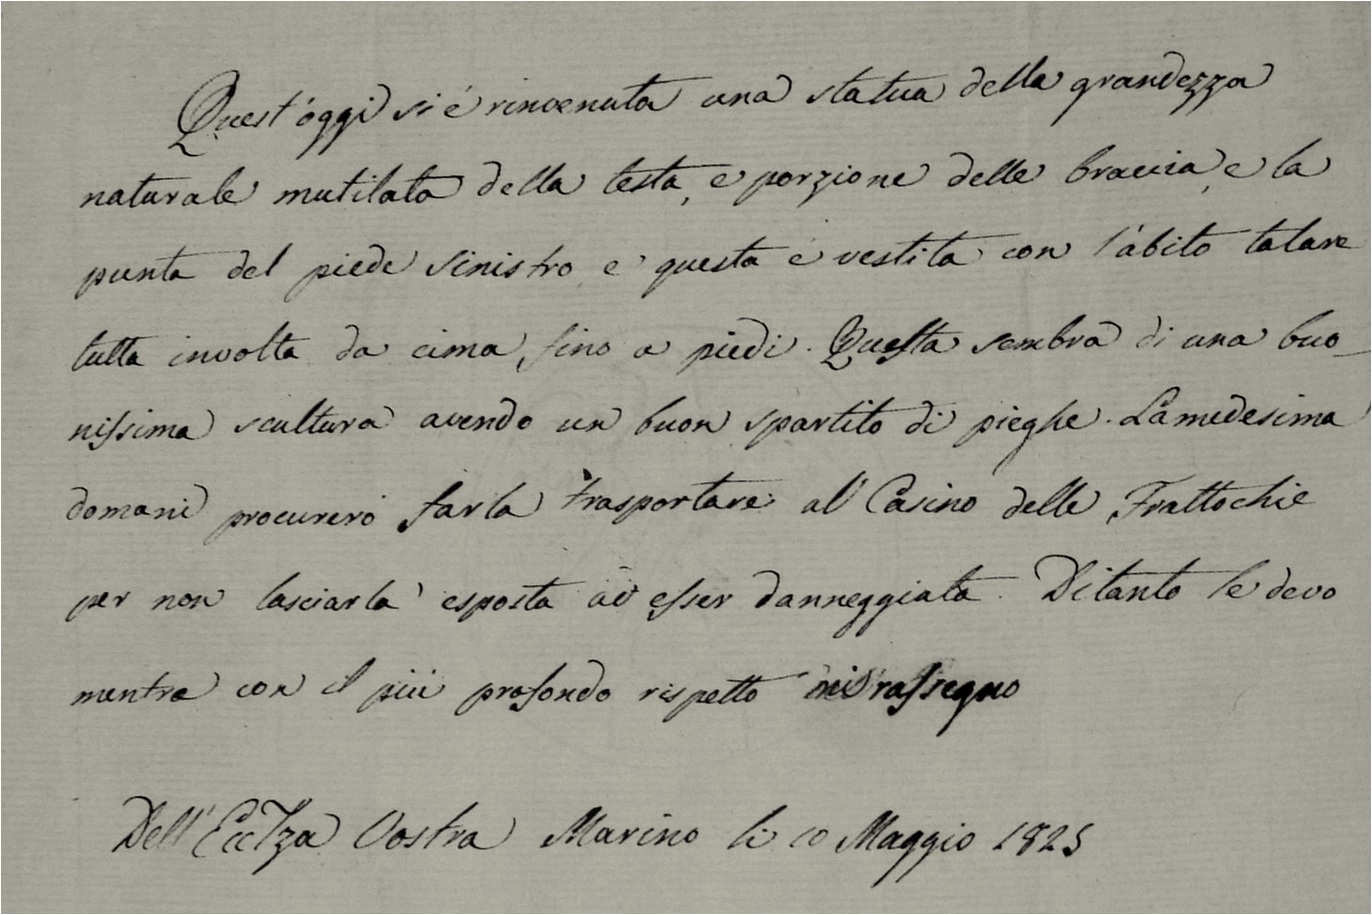 Quest'oggi si é rinvenuta una statua della grandezza
naturale mutilata della testa, e porzione delle braccia, e la
punta del piede sinistro e questa é vestita con l'ábito talare
tutta involta da cima, fino a piedi. Questa sembra di una buo_
nissima scultura avendo un buon spartito di pieghe. La medesima
domani procureró farla trasportare al' Casino delle Frattochie
per non lasciarla esposta ad esser danneggiata. Di tanto le devo
mentre con il piú profondo rispetto mi rassegno
Dell'Ecclza Vostra Marino li 10 Maggio 1825